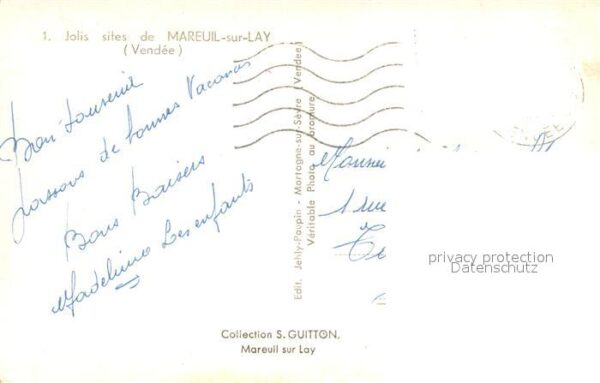 1. Jolis sites de MAREUIL-sur-LAY
(Vendée)
Bon souvenir
passons de bonnes Vacances
Bons Baisers
Madeleine Les enfants
Edit. Jehly-Poupin - Mortagne-sur-Sèvre (Vendée)
Véritable Photo au bromure.
1 rue
privacy protection
Datenschutz
Collection S. GUITTON,
Mareuil sur Lay